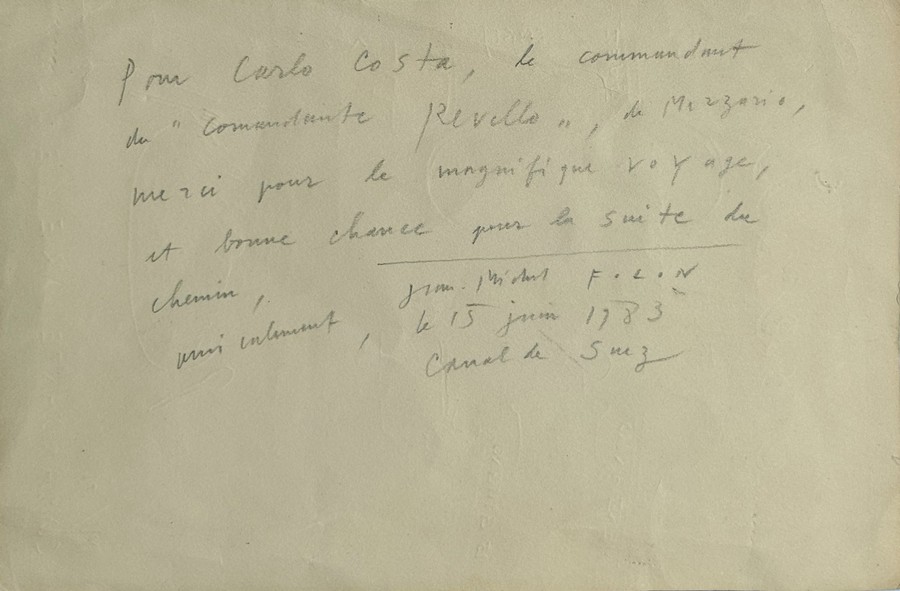 Pour Carlo Costa, le commandant
du "Comandante Revello", de Merzario,
merci pour le magnifique voyage,
et bonne chance pour la suite du
chemin,
amicalement,
Jean-Michel FOLON
le 15 juin 1983
Canal de Suez